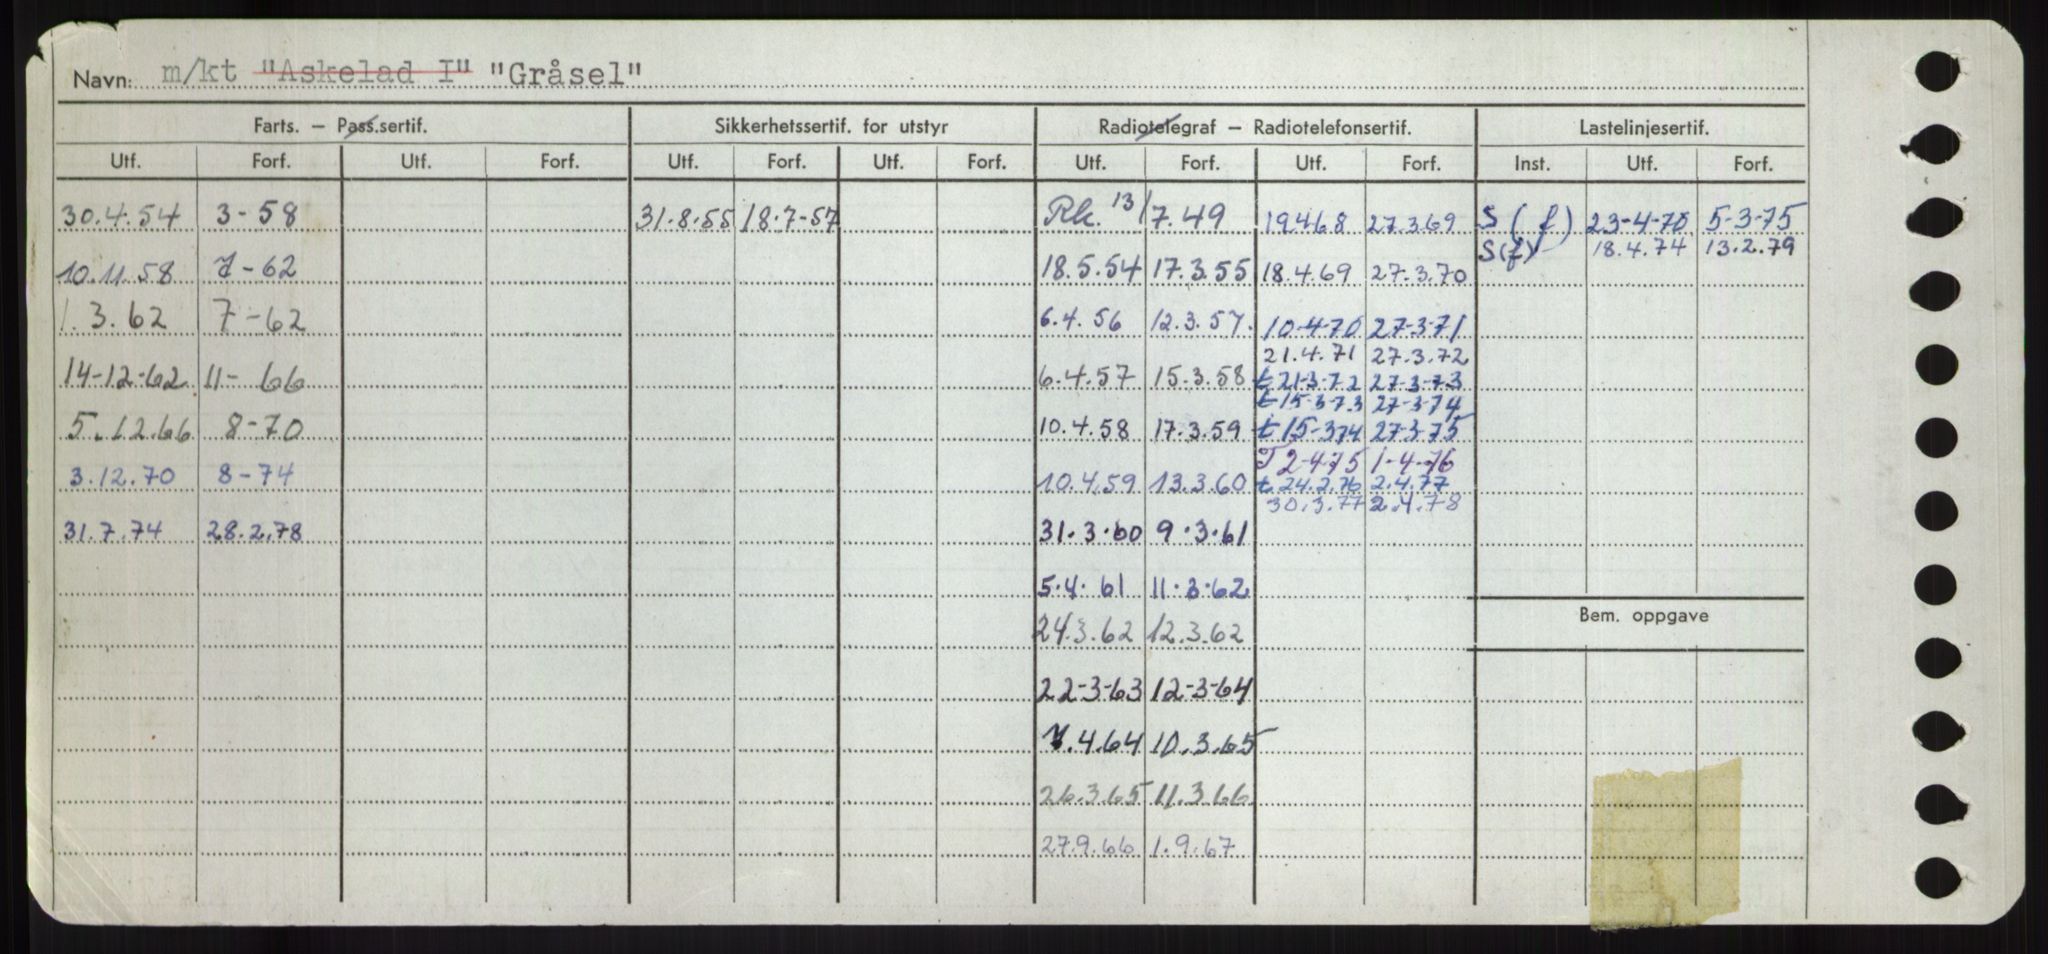 Navn: m/kt "Askelad I" "Gråsel"
Farts. — Pass.sertif. Sikkerhetssertif. for utstyr Radiotelegraf — Radiotelefonsertif. Lastelinjesertif.
Utf. Forf. Utf. Forf. Utf. Forf. Utf. Forf. Utf. Forf. Utf. Forf. Inst. Utf. Forf.
30.4.54 3-58 31.8.55 18.7-57 Rk. 13/7.49 19468 27.3.69 S (f) 23-4-70 5-3-75
S(f) 18.4.74 13.2.79
10.11.58 7-62 18.5.54 17.3.55 18.4.69 27.3.70
1.3.62 7-62 6.4.56 12.3.57. 10-4-70 27-3-71
21.4.71 27.3.72
14-12-62 11-66 6.4.57 15.3.58 t 21-3-72 27-3-73
t 15-3-73 27-3-74
5.12.66 8-70 10.4.58 17.3.59 t 15-374 27-3-75
T 2-4-75 1-4-76
3.12.70 8-74 10.4.59 13.3.60 t 24.2.76 2.4.77
30.3.77 2.4.78
31.7.74 28.2.78 31.3.60 9.3.61
5.4.61 11.3.62
Bem. oppgave
24.3.62 12.3.62
22-3-63 12-3-64
7.4.64 10.3.65
26.3.65 11.3.66
27.9.66 1.9.67